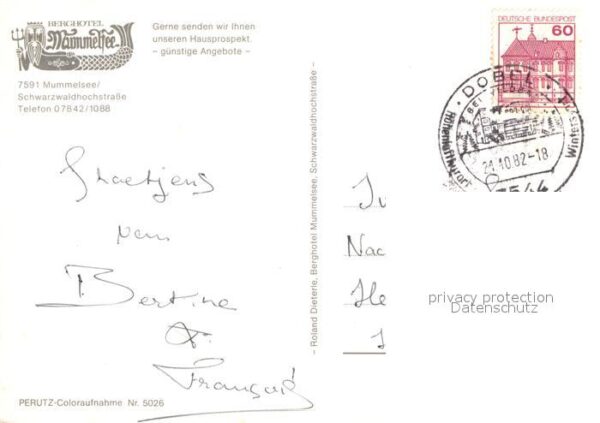 BERGHOTEL
Mummelsee
Gerne senden wir Ihnen
unseren Hausprospekt.
– günstige Angebote –
7591 Mummelsee/
Schwarzwaldhochstraße
Telefon 07842/1088
Groetjens
van
Bertine
&
PERUTZ-Coloraufnahme Nr. 5026
– Roland Dieterle, Berghotel Mummelsee, Schwarzwaldhochstraße –
DEUTSCHE BUNDESPOST
60
DOBEL
Winters
21.10.82-18
7544
Nac
He
privacy protection
Datenschutz